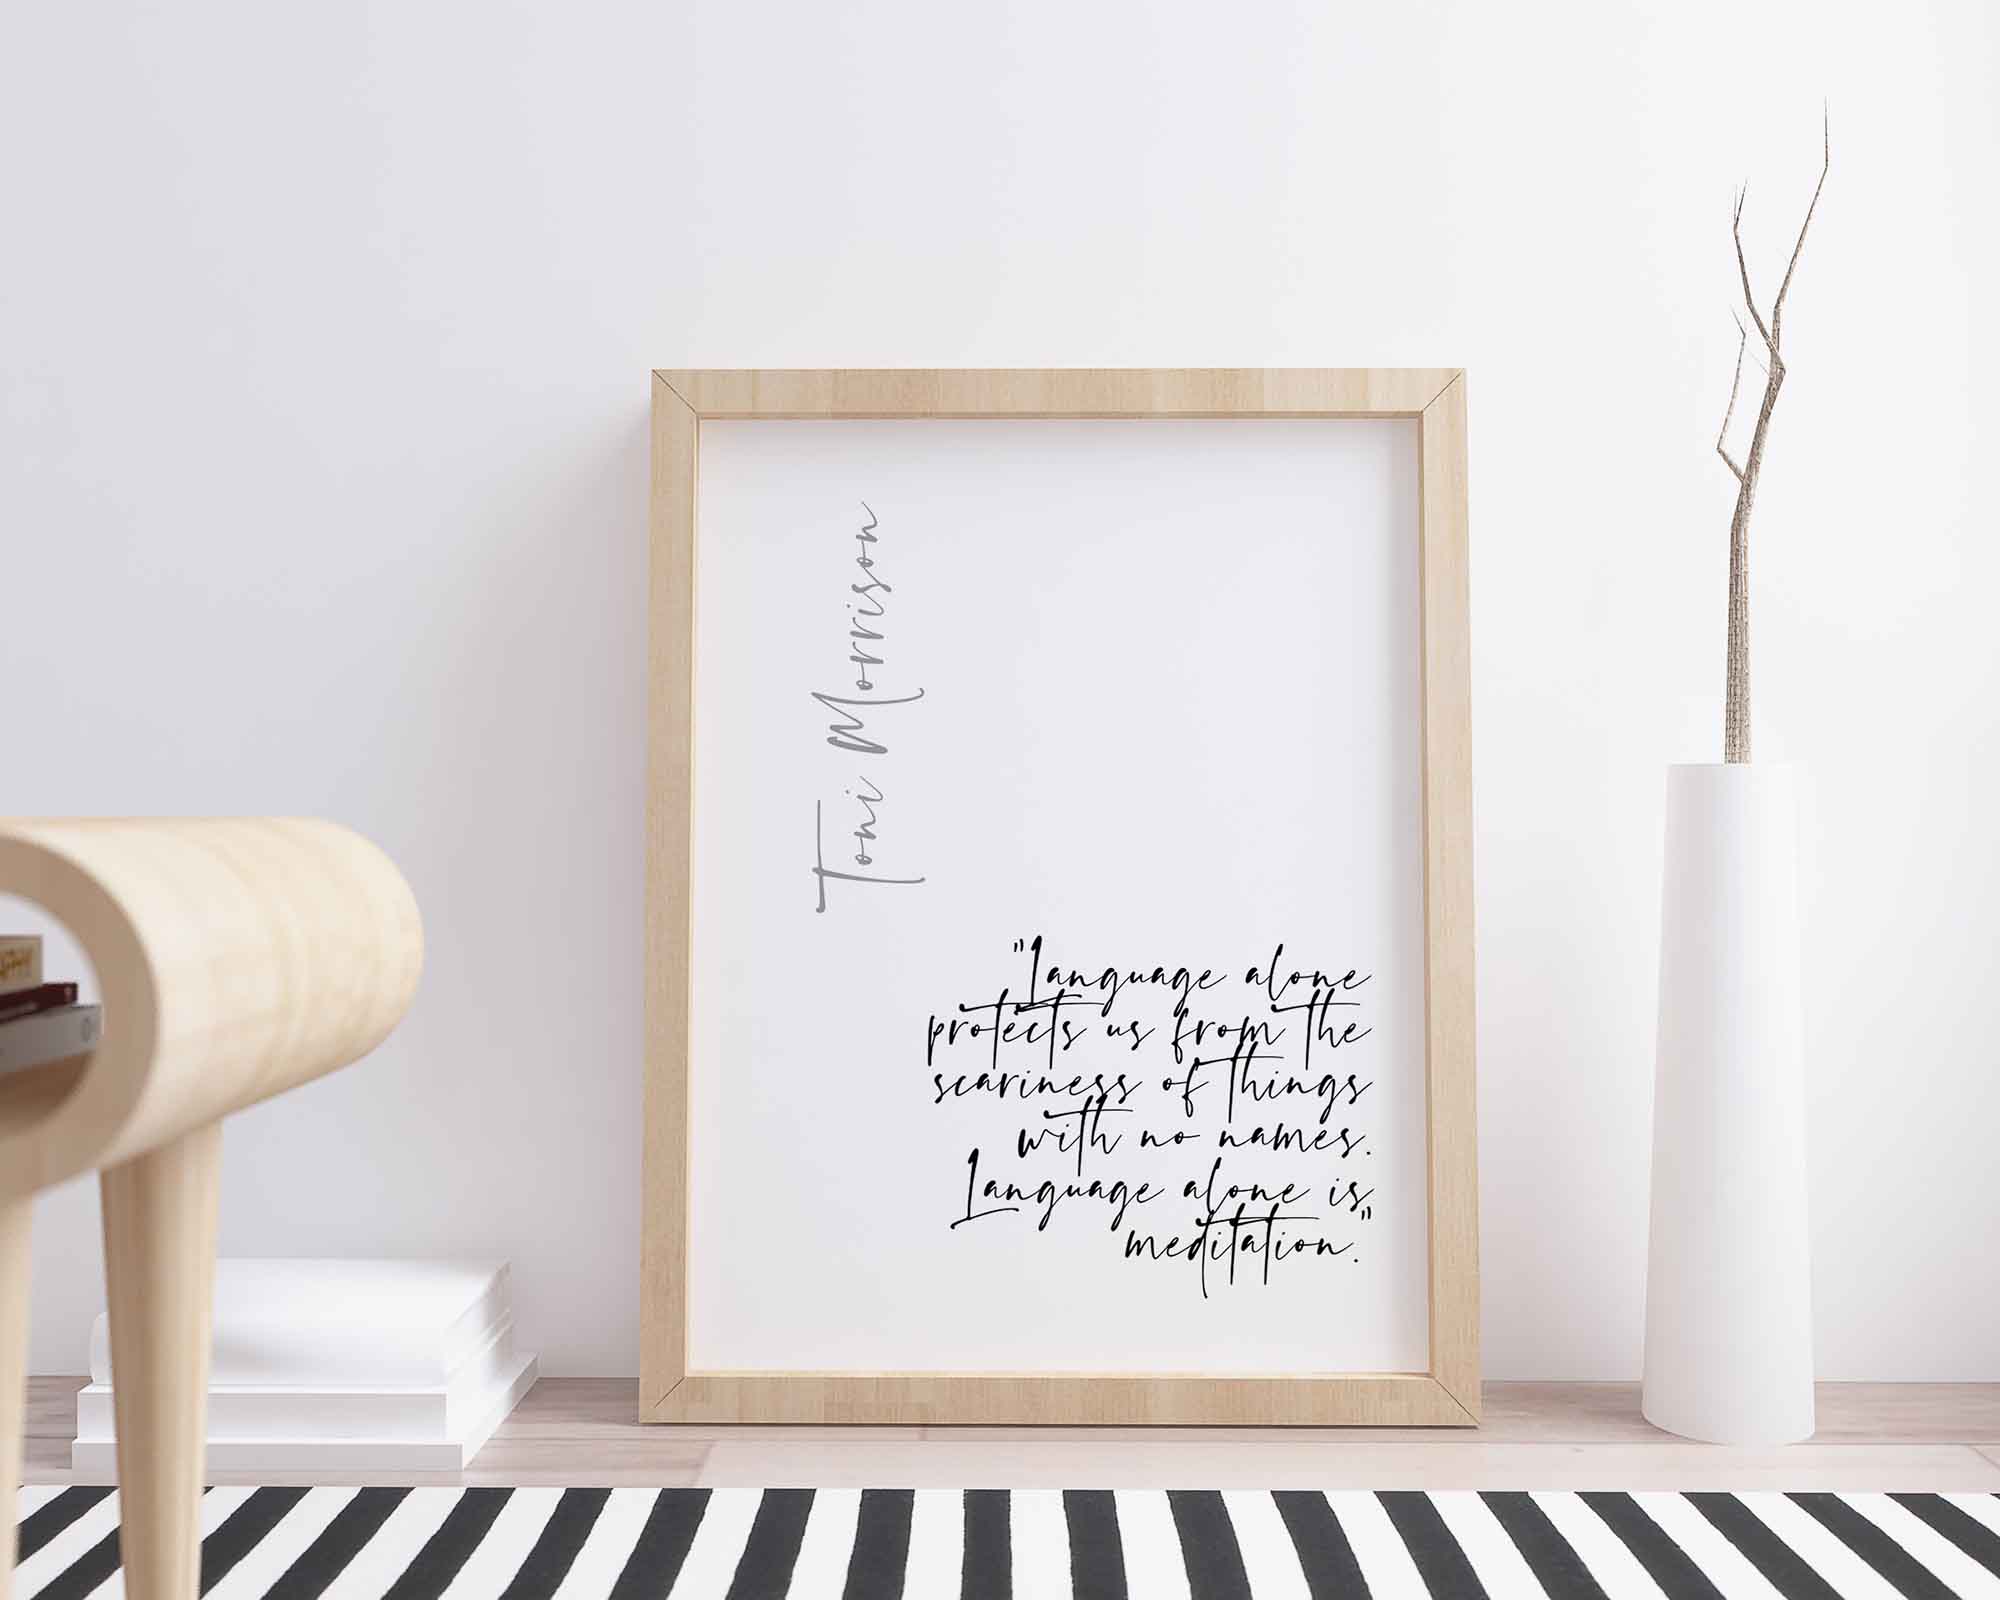 Toni Morrison
"Language alone
protects us from the
scariness of things
with no names.
Language alone is
meditation."